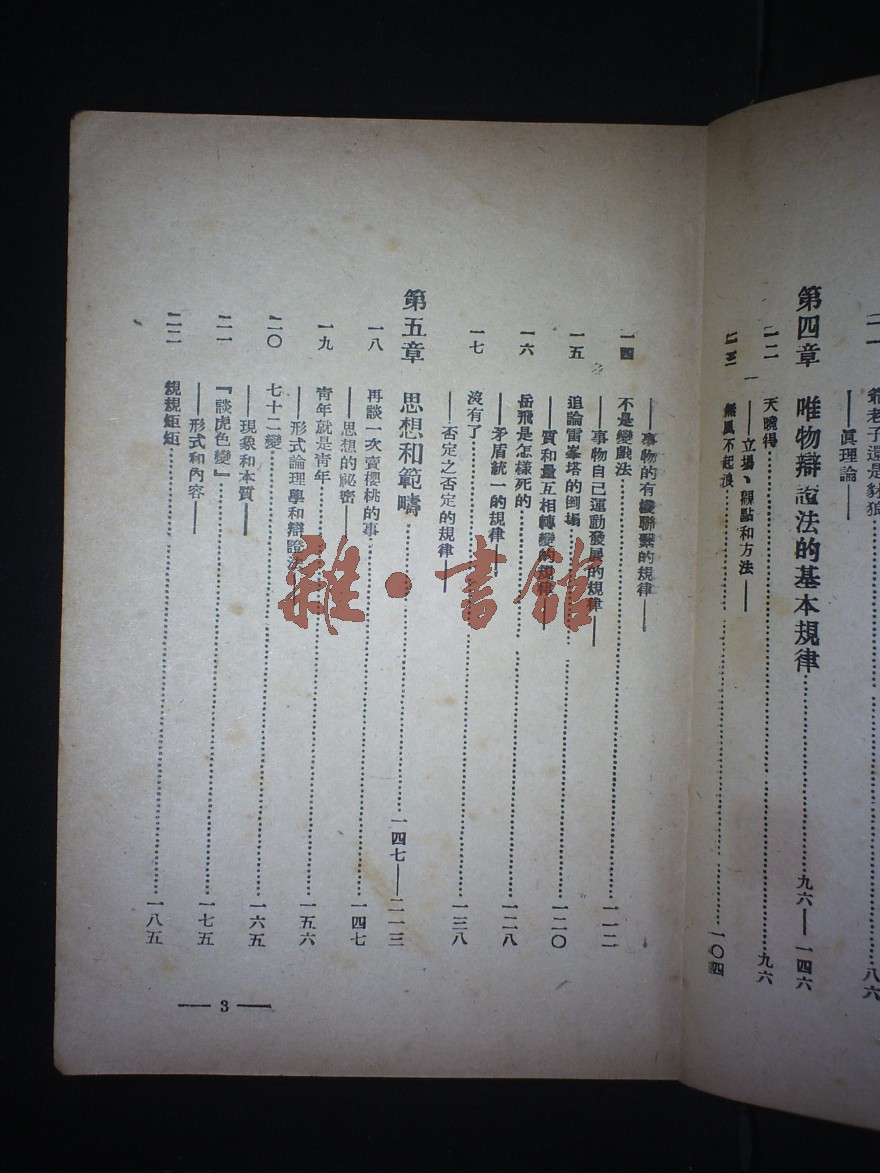 爺老子還是豺狼……八六
——眞理論——
第四章　唯物辯證法的基本規律……九六——一四六
一二　天曉得……九六
——立場、觀點和方法——
一三　無風不起浪……一〇四
——事物的有機聯繫的規律——
一四　不是變戲法……一一二
——事物自己運動發展的規律——
一五　追論雷峯塔的倒塌……一二〇
——質和量互相轉變的規律——
一六　岳飛是怎樣死的……一二八
——矛盾統一的規律——
一七　沒有了……一三八
——否定之否定的規律——
第五章　思想和範疇……一四七——二一三
一八　再談一次賣櫻桃的事……一四七
——思想的祕密——
一九　靑年就是靑年……一五六
——形式論理學和辯證法——
二〇　七十二變……一六五
——現象和本質——
二一　『談虎色變』……一七五
——形式和內容——
二二　規規矩矩……一八五
—— 3 ——
雜·書館